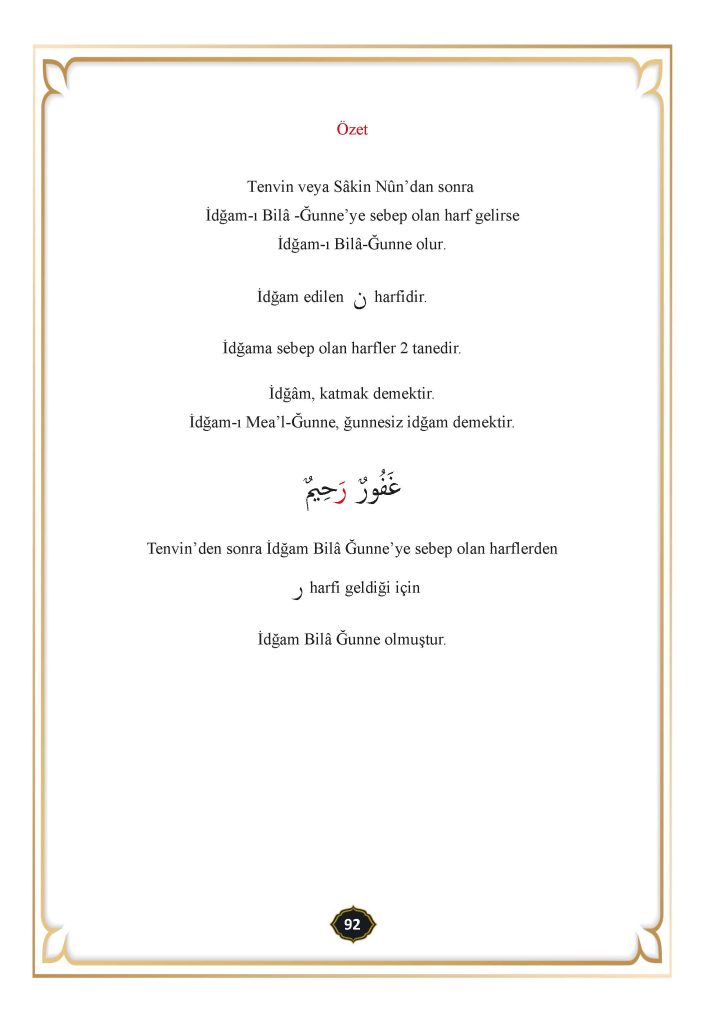 Özet
Tenvin veya Sâkin Nûn’dan sonra
İdğam-ı Bilâ -Ğunne’ye sebep olan harf gelirse
İdğam-ı Bilâ-Ğunne olur.
İdğam edilen ن harfidir.
İdğama sebep olan harfler 2 tanedir.
İdğâm, katmak demektir.
İdğam-ı Mea’l-Ğunne, ğunnesiz idğam demektir.
غَفُورٌ رَحِيمٌ
Tenvin’den sonra İdğam Bilâ Ğunne’ye sebep olan harflerden
ر harfi geldiği için
İdğam Bilâ Ğunne olmuştur.
92